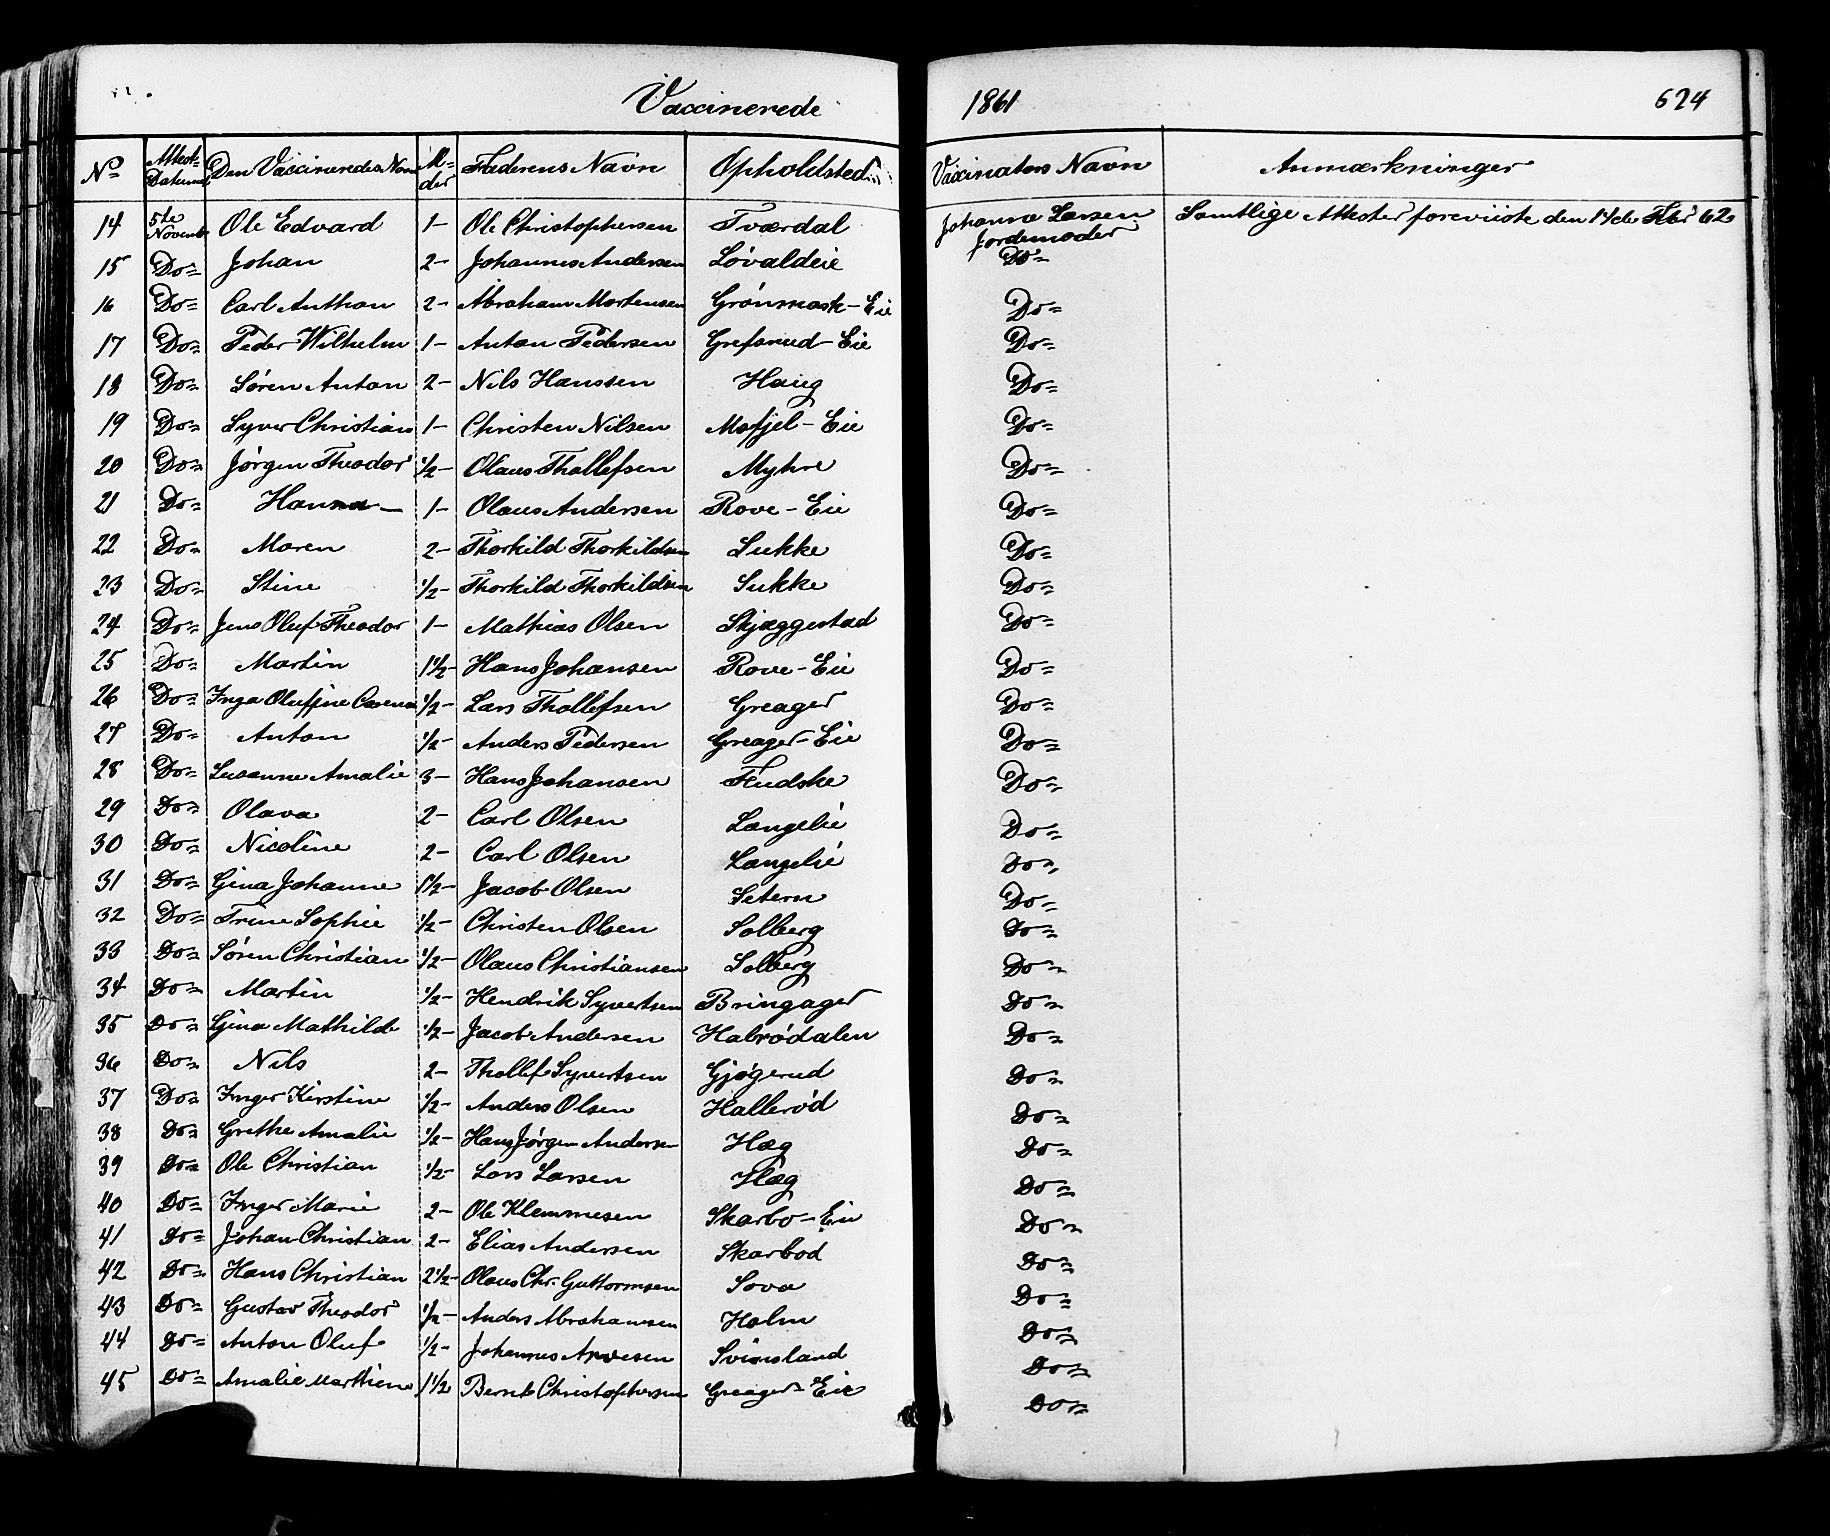 Vaccinerede 1861 674
No Attest-Datum Den Vaccineredes Navn Al-der Faderens Navn Opholdsted Vaccinators Navn Anmærkninger
14 5te Novemb Ole Edvard 1- Ole Christophersen Tværdal Johanne Larsen Jordemoder Samtlige Attester foreviiste den 14de 62
15 Do= Johan 2- Johannes Andersen Løvaldeie Do=
16 Do= Carl Anthon 2- Abraham Mortensen Grønmosk-Eie Do=
17 Do= Peder Wilhelm 1- Anton Pedersen Grefsrud-Eie Do=
18 Do= Søren Anton 2- Nils Hanssen Haug Do=
19 Do= Syver Christian 1- Christen Nilsen Mofjel-Eie Do=
20 Do= Jørgen Theodor 1/2- Olaus Thollefsen Myhre Do=
21 Do= Hanna 1- Olaus Andersen Rove-Eie Do=
22 Do= Maren 2- Thorkild Thorkildsen Sukke Do=
23 Do= Stine 1/2- Thorkild Thorkildsen Sukke Do=
24 Do= Jens Oluf Theodor 1- Mathias Olsen Skjæggestad Do=
25 Do= Martin 1 1/2- Hans Johansen Rove-Eie Do=
26 Do= Inga Oluffine Carena 1/2- Lars Thollefsen Greager Do=
27 Do= Anton 1/2- Anders Pedersen Greager-Eie Do=
28 Do= Susanne Amalie 3- Hans Johansen Fludske Do=
29 Do= Olava 2- Carl Olsen Langelie Do=
30 Do= Nicoline 2- Carl Olsen Langelie Do=
31 Do= Gina Johanne 1 1/2- Jacob Olsen Setern Do=
32 Do= Trine Sophie 1/2- Christen Olsen Solberg Do=
33 Do= Søren Christian 1/2- Olaus Christiansen Solberg Do=
34 Do= Martin 1/2- Hendrik Syvertsen Bringager Do=
35 Do= Gina Mathilde 1/2- Jacob Andersen Halrødalen Do=
36 Do= Nils 2- Thollef Syvertsen Gjøgerud Do=
37 Do= Inger Kirstine 1/2- Anders Olsen Hallerød Do=
38 Do= Grethe Amalie 1/2- Hans Jørgen Andersen Hæg Do=
39 Do= Ole Christian 1/2- Lars Larsen Hæg Do=
40 Do= Inger Marie 2- Ole Klemmesen Skarbo-Eie Do=
41 Do= Johan Christian 2- Elias Andersen Skarbod Do=
42 Do= Hans Christian 2 1/2- Olaus Chr. Guttormsen Sova Do=
43 Do= Gustav Theodor 1/2- Anders Abrahamsen Holm Do=
44 Do= Anton Oluf 1/2- Johannes Arvesen Svinsland Do=
45 Do= Amalie Marthine 1 1/2 Bernt Christophersen Greager-Eie Do=